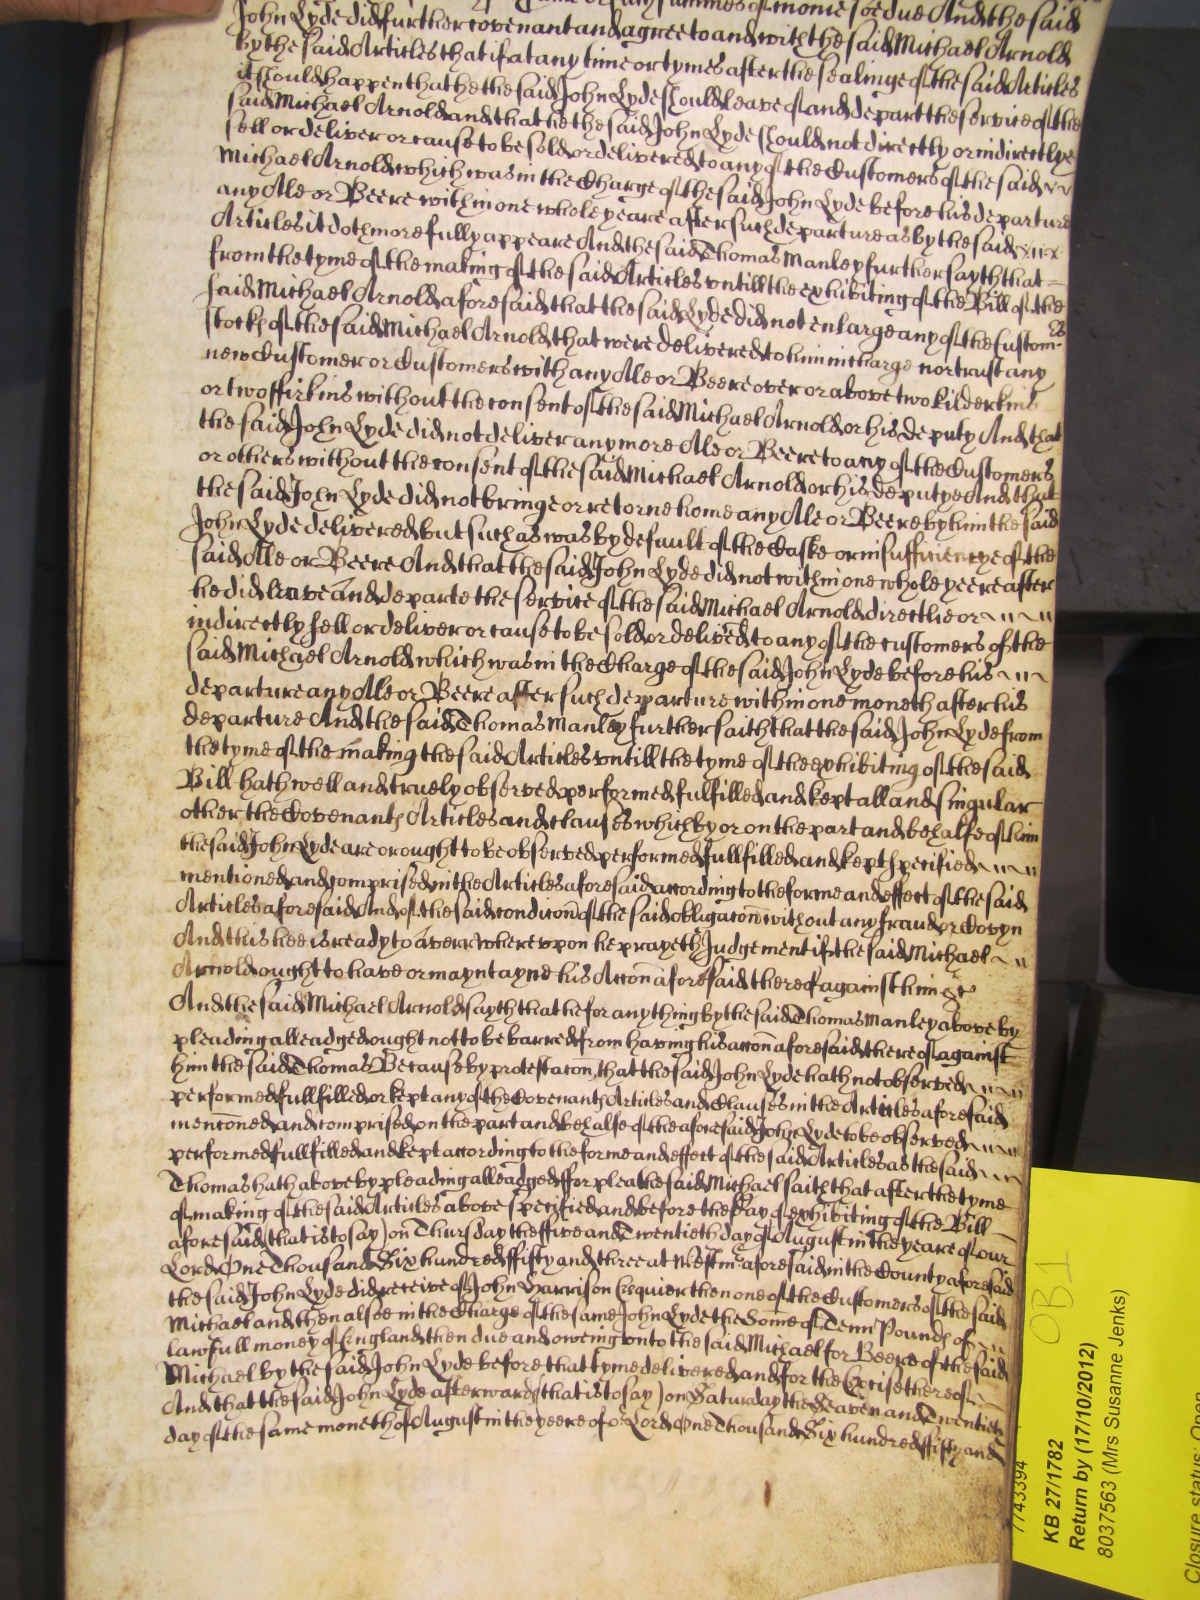 summes of monie soe due And the said
John Lyde did further covenant and agree to and with the said Michael Arnold
by the said Articles that if at any time or tymes after the sealinge of the said Articles
it should happen that he the said John Lyde should leave of and depart the service of the
said Michael Arnold and that he the said John Lyde should not directly or indirectlye
sell or deliver or cause to be sold or delivered to any of the Customers of the said
Michael Arnold which was in the Charge of the said John Lyde before his departure
any Ale or Beere within one whole yeare after such departure as by the said
Articles it doth more fully appeare And the said Thomas Manley further sayth that
from the tyme of the making of the said Articles untill the exhibiting of the Bill of the
said Michael Arnold aforesaid that the said Lyde did not enlarge any of the Custom-
ers
stock of the said Michael Arnold that were delivered to him in charge nor trust any
new Customer or Customers with any Ale or Beere over or above two kilderkins
or two ffirkins without the consent of the said Michael Arnold or his deputy And that
the said John Lyde did not deliver any more Ale or Beere to any of the Customers
or others without the consent of the said Michael Arnold or his deputye And that
the said John Lyde did not bringe or retorne home any Ale or Beere by him the said
John Lyde delivered but such as was by default of the Caske or insufficiencye of the
said Ale or Beere And that the said John Lyde did not within one whole yeere after
he did leave and departe the service of the said Michael Arnold directlie or
indirectly sell or deliver or cause to be sold or delived to any of the customers of the
said Michael Arnold which was in the Charge of the said John Lyde before his
departure any Ale or Beere after such departure within one moneth after his
departure And the said Thomas Manley further saith that the said John Lyde from
the tyme of the making the said Articles untill the tyme of the exhibiting of the said
Bill hath well and truely observed performed fulfilled and kept all and singular
other the Covenants Articles and clauses which by or on the part and behalfe of him
the said John Lyde are or ought to be observed performed fullfilled and kept specified
mentioned and comprised in the Articles aforesaid according to the forme and effect of the said
Articles aforesaid And of the said condicon of the said obligacon without any fraud or Covyn
And this hee is ready to averr whereupon he prayeth Judgement if the said Michael
Arnold ought to have or mayntayne his Accon aforesaid thereof against him &c
And the said Michael Arnold sayth that he for any thing by the said Thomas Manley above by
pleading alleadged ought not to be barred from having his accon aforesaid thereof against
him the said Thomas Because by protestacon that the said John Lyde hath not observed
performed fullfilled or kept any of the Covenants Articles and Clauses in the Articles aforesaid
menconed and comprised on the part and behalfe of the aforesaid John Lyde to be observed
performed fullfilled and kept according to the forme and effect of the said Articles as the said
Thomas hath above by pleading alleadged ffor plea the said Michael saith that after the tyme
of making of the said Articles above specified and before the day of exhibiting of the Bill
aforesaid (that is to say) on Thursday the ffive and Twentieth day of August in the yeare of our
Lord One Thousand Six hundred ffifty and three at Westmr aforesaid in the County aforesaid
the said John Lyde did receive of John Harrison Esquier then one of the Customers of the said
Michael and then alsoe in the Charge of the same John Lyde the Some of Tenn Pounds of
lawfull money of England then due and oweing unto the said Michael for Beere of the said
Michael by the said John Lyde before that tyme delivered and for the Excise thereof
And that the said John Lyde afterwards (that is to say) on Saturday the Seaven and Twentieth
day of the same moneth of August in the yeere of or Lord One Thousand Six hundred ffifty and
OB1
7743394
KB 27/1782
Return by (17/10/2012)
8037563 (Mrs Susanne Jenks)
Closure status: Open